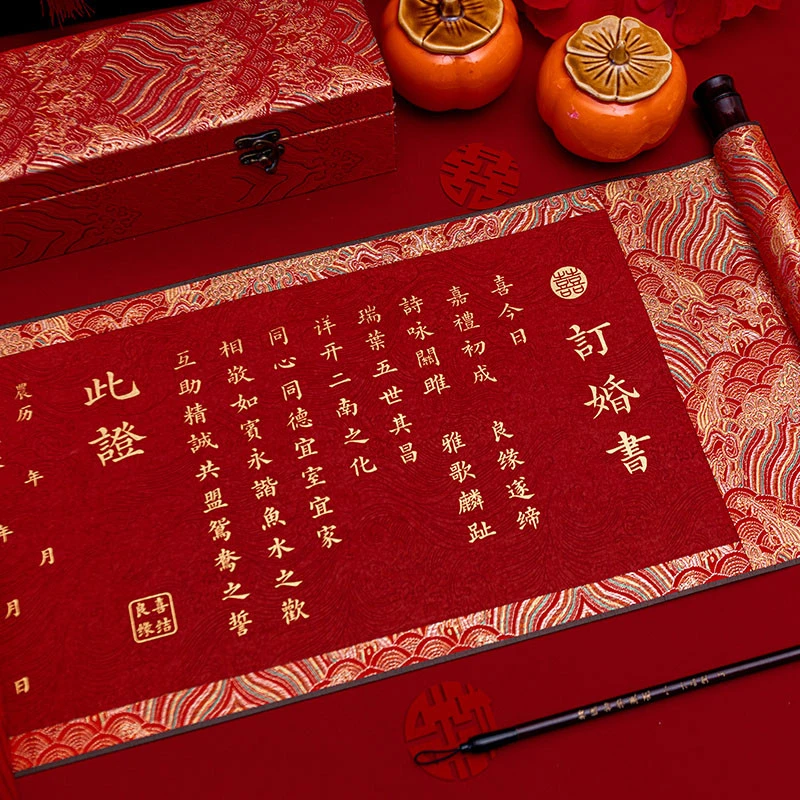 囍
訂婚書
喜今日
嘉禮初成 良缘遂缔
詩咏關雎 雅歌麟趾
瑞葉五世其昌
详开二南之化
同心同德宜室宜家
相敬如賓永諧魚水之歡
互助精誠共盟鴛鴦之誓
此證
喜结
良缘
農历 年 月
年 月 日
囍
囍